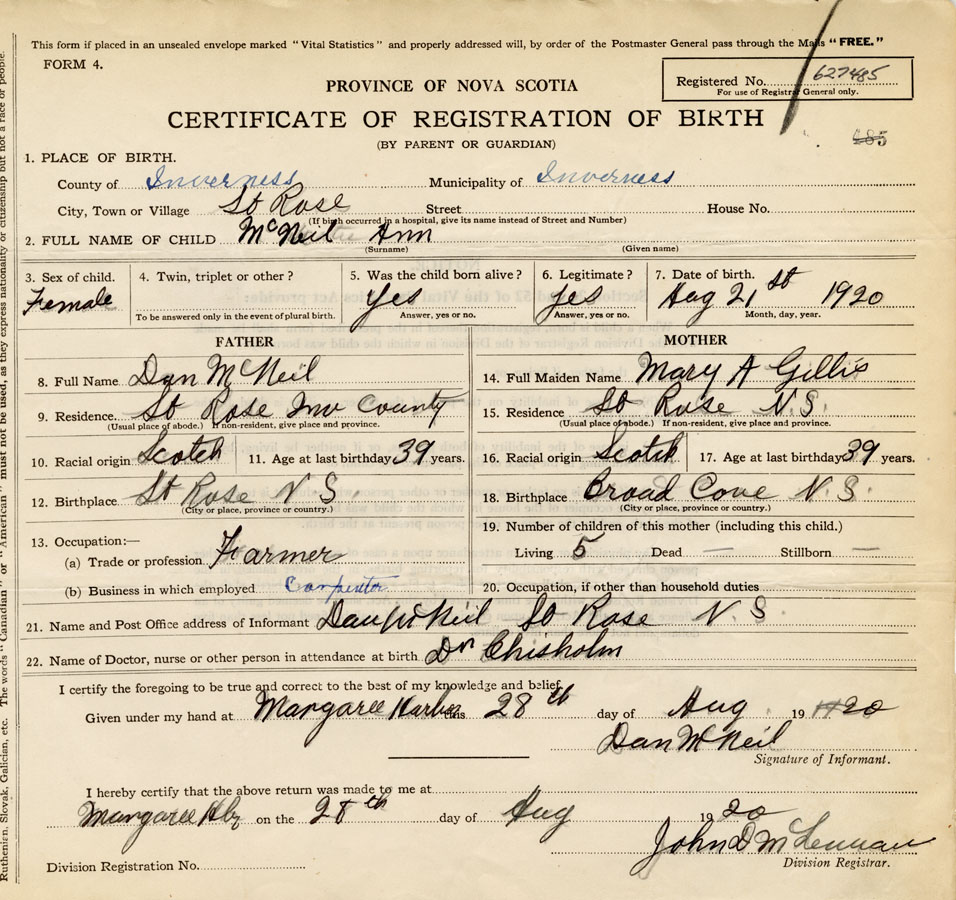 This form if placed in an unsealed envelope marked "Vital Statistics" and properly addressed will, by order of the Postmaster General pass through the Mails "FREE."
FORM 4.
Registered No. 627485
For use of Registrar General only.
PROVINCE OF NOVA SCOTIA
CERTIFICATE OF REGISTRATION OF BIRTH
(BY PARENT OR GUARDIAN)
485
1. PLACE OF BIRTH.
County of Inverness Municipality of Inverness
City, Town or Village St Rose Street House No.
(If birth occurred in a hospital, give its name instead of Street and Number)
2. FULL NAME OF CHILD McNeil Ann
(Surname) (Given name)
3. Sex of child. 4. Twin, triplet or other? 5. Was the child born alive? 6. Legitimate? 7. Date of birth.
Female Yes Yes Aug 21st 1920
To be answered only in the event of plural birth. Answer, yes or no. Answer, yes or no. Month, day, year.
FATHER MOTHER
8. Full Name Dan McNeil 14. Full Maiden Name Mary A Gillis
9. Residence. St Rose Inv County 15. Residence St Rose N.S.
(Usual place of abode.) If non-resident, give place and province. (Usual place of abode.) If non-resident, give place and province.
10. Racial origin Scotch 11. Age at last birthday 39 years. 16. Racial origin Scotch 17. Age at last birthday 39 years.
12. Birthplace St Rose N S. 18. Birthplace Broad Cove N.S.
(City or place, province or country.) (City or place, province or country.)
19. Number of children of this mother (including this child.)
13. Occupation:—
Living 5 Dead — Stillborn —
(a) Trade or profession Farmer
(b) Business in which employed Carpenter 20. Occupation, if other than household duties
21. Name and Post Office address of Informant Dan McNeil St Rose N. S
22. Name of Doctor, nurse or other person in attendance at birth Dr Chisholm
I certify the foregoing to be true and correct to the best of my knowledge and belief.
Given under my hand at Margaree Harbor this 28th day of Aug 1920
Dan McNeil
Signature of Informant.
I hereby certify that the above return was made to me at
Margaree Hbr on the 28th day of Aug 1920
John D McLennan
Division Registrar.
Division Registration No.
Ruthenian, Slovak, Galician, etc. The words "Canadian" or "American" must not be used, as they express nationality or citizenship but not a race or people.